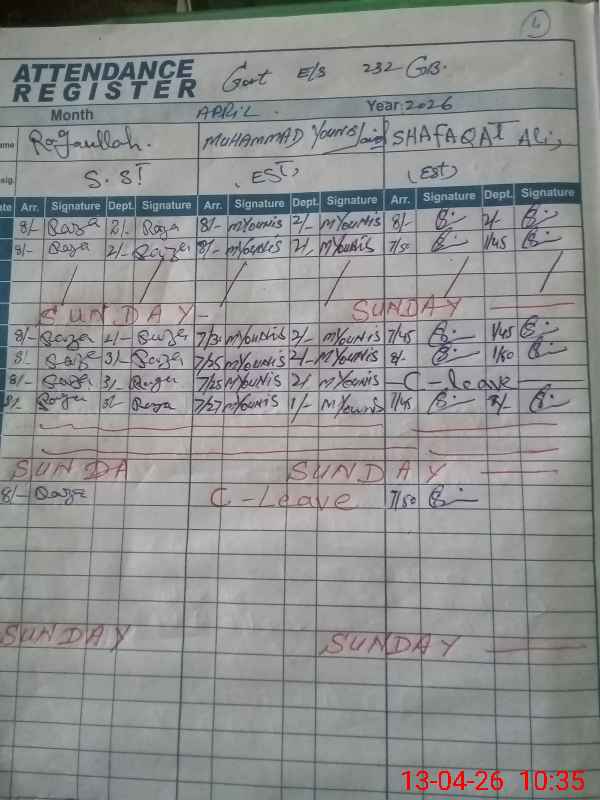 4
ATTENDANCE REGISTER Govt E/S 232-GB.
Month APRIL. Year:2026
ame MUHAMMAD YOUNIS SHAFAQAT Ali,
sig. S.ST (EST) (EST)
ate Arr. Signature Dept. Signature Arr. Signature Dept. Signature Arr. Signature Dept. Signature
8/- Raza 2/- Raza 8/- MYOUNIS 2/- MYOUNIS 8/- 2/-
8/- Raza 2/- Raza 8/- MYOUNIS 2/- MYOUNIS 7/50 1/45
SUNDAY- SUNDAY
8/- Raza 2/- Raza 7/30 MYOUNIS 2/- MYOUNIS 7/45 1/45
8/- Raza 3/- Raza 7/25 MYOUNIS 2/- MYOUNIS 8/- 1/50
8/- Raza 3/- Raza 7/25 MYOUNIS 2/- MYOUNIS C-leave
8/- Raza 3/- Raza 7/27 MYOUNIS 1/- MYOUNIS 7/45
SUNDA SUNDAY
8/- Raza C-Leave 7/50
SUNDAY SUNDAY
13-04-26 10:35